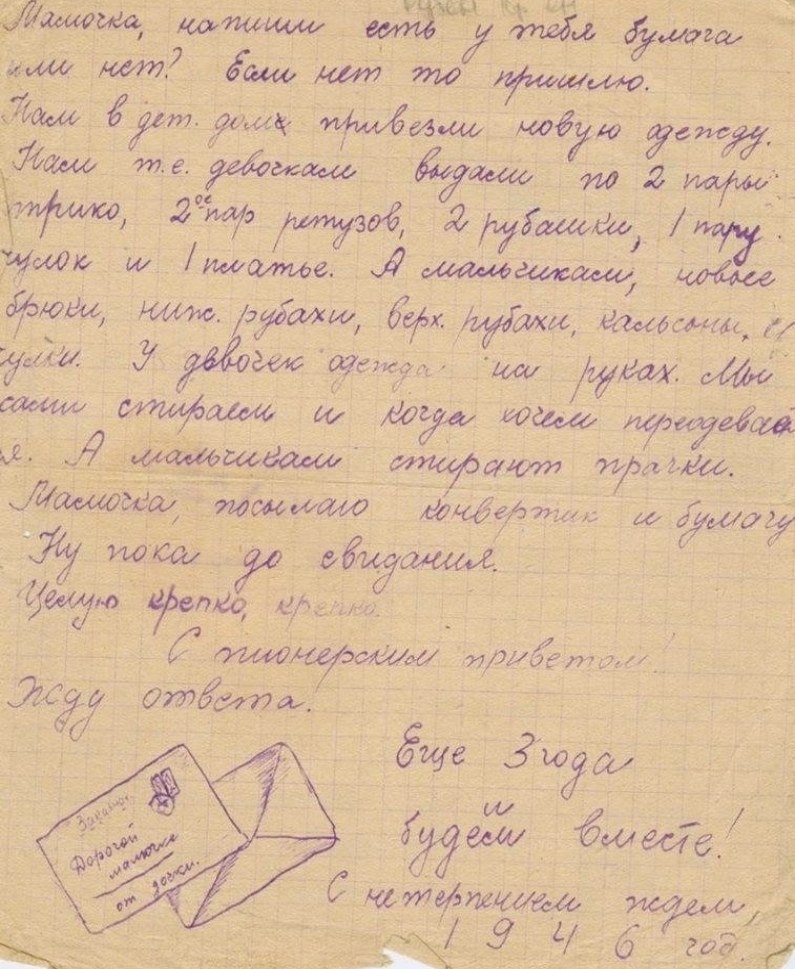 Мамочка, напиши есть у тебя бумага
или нет? Если нет то пришлю.
Нам в дет. доме привезли новую одежду.
Нам т.е. девочкам выдали по 2 пары
трико, 2ое пар ретузов, 2 рубашки, 1 пару
чулок и 1 платье. А мальчикам, новые
брюки, ниж. рубахи, верх. рубахи, кальсоны, и
чулки. У девочек одежда на руках. Мы
сами стираем и когда хочем переодеваем
ся. А мальчикам стирают прачки.
Мамочка, посылаю конвертик и бумагу
Ну пока до свидания.
Целую крепко, крепко.
С пионерским приветом!
Жду ответа.
Еще 3 года
и
будем вместе!
С нетерпением ждем,
1946 год.
Заказное
Дорогой
мамочке
от дочки.